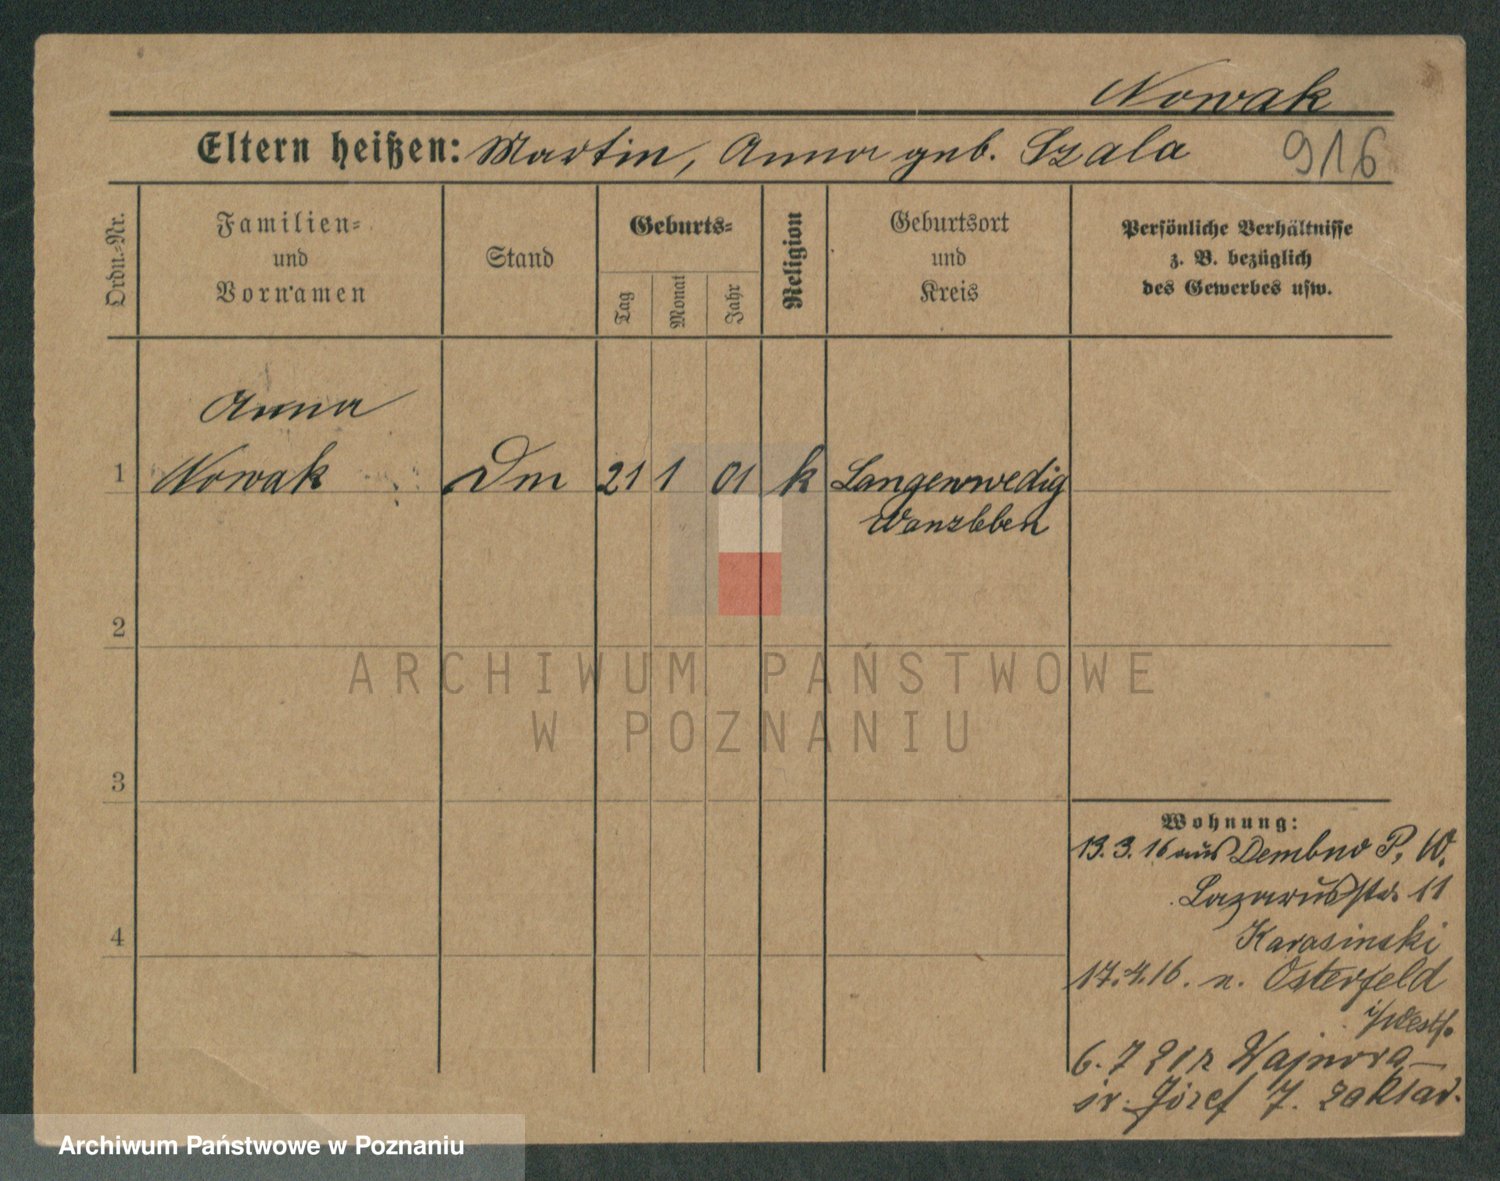 Nowak
Eltern heißen: Martin, Anna geb. Szala 916
Ordn.-Nr.
Familien-
und
Vornamen
Stand
Geburts-
Tag
Monat
Jahr
Religion
Geburtsort
und
Kreis
Persönliche Verhältnisse
z. B. bezüglich
des Gewerbes usw.
Anna
1 Nowak Dm 21 1 01 k Langenwedig
Wanzleben
2
ARCHIWUM PAŃSTWOWE
W POZNANIU
3
Wohnung:
13. 3. 16 aus Dembno P. W.
Lazarusstr. 11
Karasinski
17.4.16. n. Osterfeld
4
i/Westf.
6. 7 21 z
św. Józef 7. zakład.
Archiwum Państwowe w Poznaniu